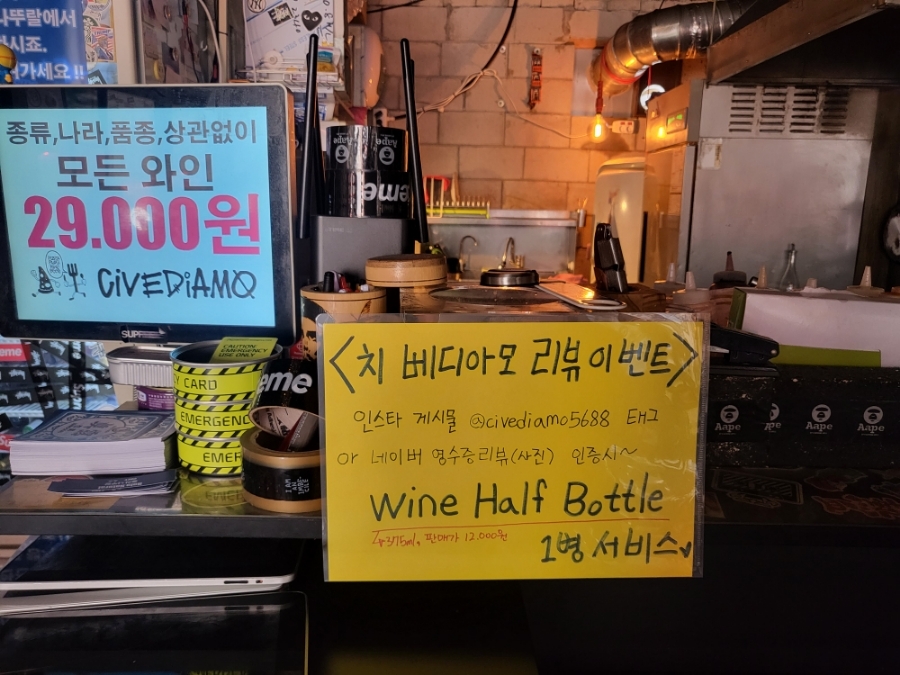 나뚜랄에서
하시죠.
가세요!!
종류,나라,품종,상관없이
모든 와인
29.000원
CiVEDiAMO
SUP
Aape
eme
CAUTION
EMERGENCY
USE ONLY
Y CARD
EMERGENC
EMER
eme
<치 베디아모 리뷰이벤트>
인스타 게시물 @civediamo5688 태그
or 네이버 영수증리뷰(사진) 인증시~
Wine Half Bottle
375ml, 판매가 12.000원
1병 서비스
Aape
Aape
Aape